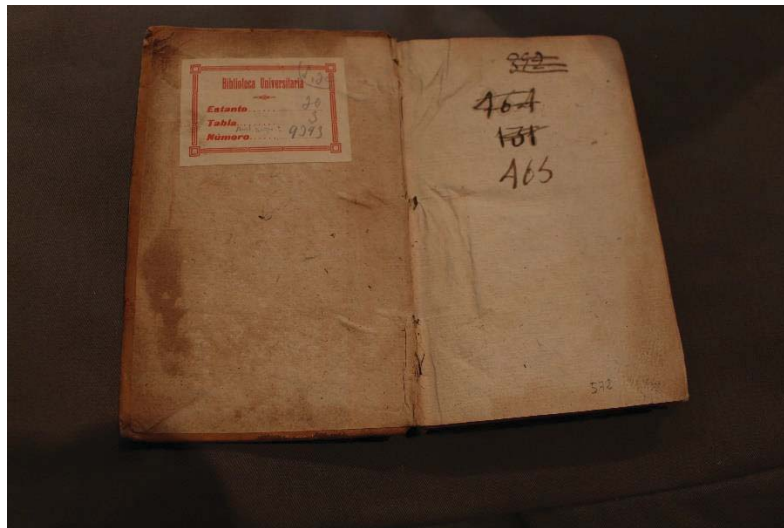 Biblioteca Universitaria
Estante.......... 20
Tabla.......... 3
Número.......... 9393
392
464
131
465
592